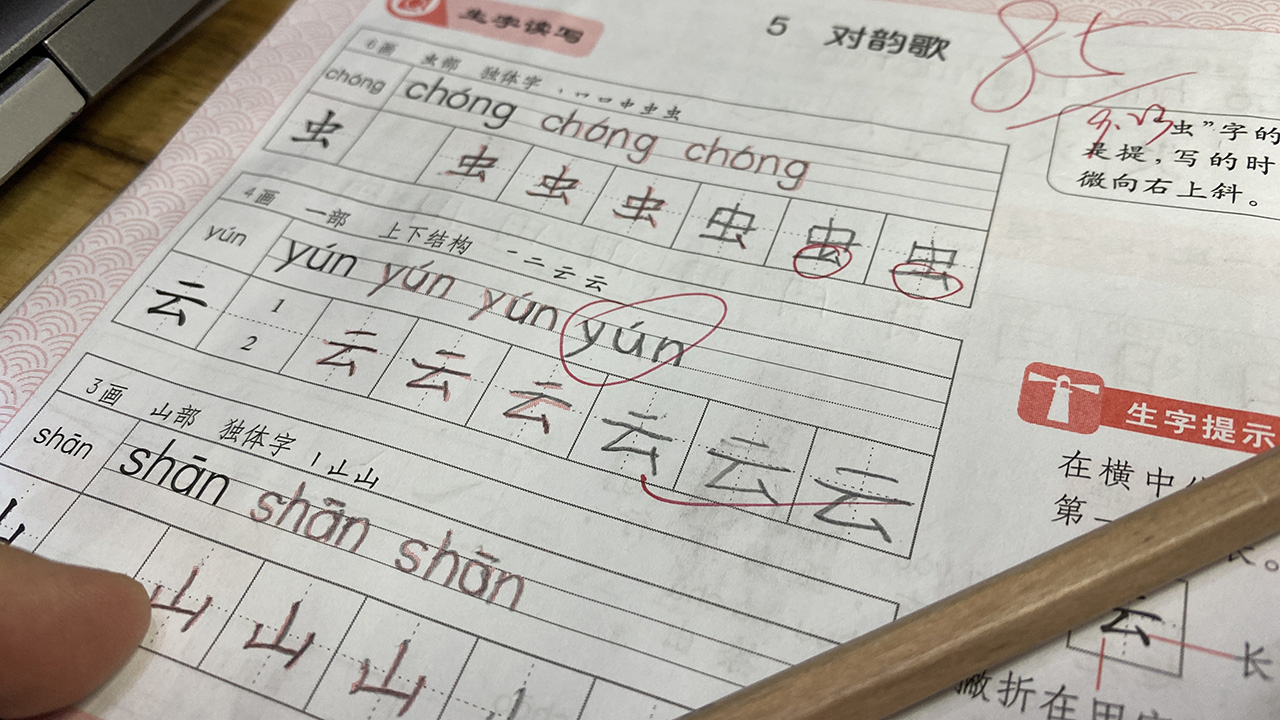 生字读写
5 对韵歌
85
9.13
6画 虫部 独体字
chóng chóng chóng chóng
虫 虫 虫 虫 虫 虫 虫
虫”字的
是提，写的时
微向右上斜。
4画 一部 上下结构
yún yún yún yún yún
云 1 2 云 云 云 云 云 云
3画 山部 独体字
shān shān shān shān
山 山 山
生字提示
在横中
第一
长。
云
长
撇折在田字